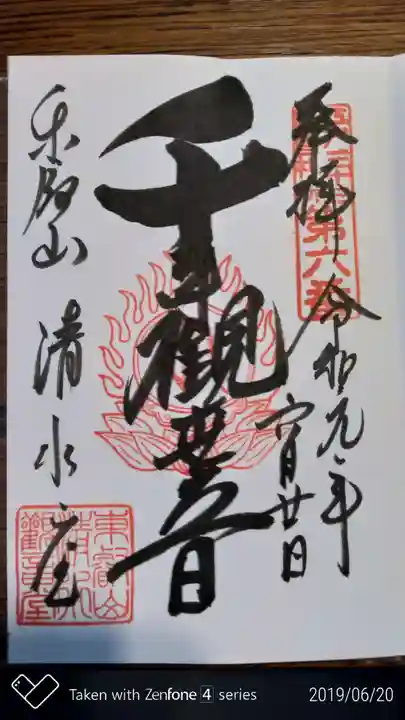 奉拝
令和元年
六月廿日
千手観音
東叡山 清水堂
第六番
Taken with Zenfone 4 series
2019/06/20